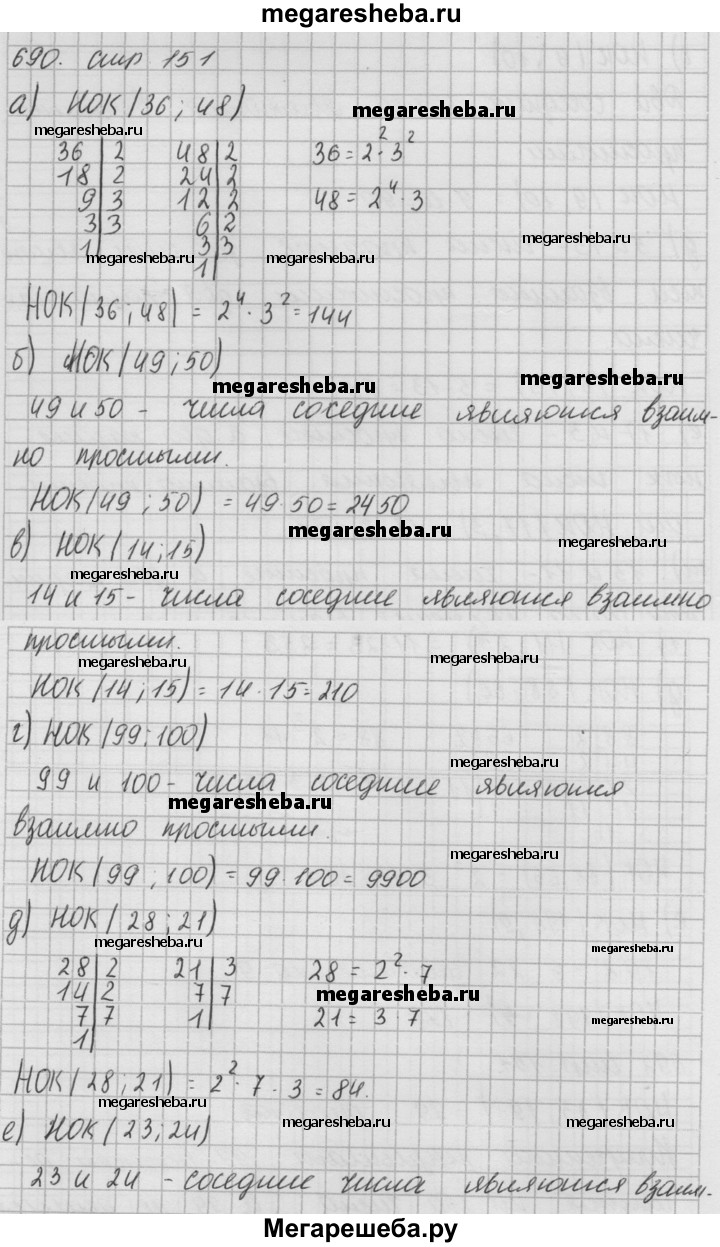 megaresheba.ru
690. стр 151
а) НОК (36 ; 48)
megaresheba.ru
megaresheba.ru
36 | 2 48 | 2 36 = 2² · 3²
18 | 2 24 | 2
9 | 3 12 | 2 48 = 2⁴ · 3
3 | 3 6 | 2
megaresheba.ru
1 | 3 | 3
megaresheba.ru megaresheba.ru megaresheba.ru
1 |
НОК (36 ; 48) = 2⁴ · 3² = 144
б) НОК (49 ; 50)
megaresheba.ru megaresheba.ru
49 и 50 - числа соседние являются взаим-
но простыми.
НОК (49 ; 50) = 49 · 50 = 2450
megaresheba.ru
в) НОК (14 ; 15)
megaresheba.ru
megaresheba.ru megaresheba.ru
14 и 15 - числа соседние являются взаимно
простыми.
megaresheba.ru megaresheba.ru
НОК (14 ; 15) = 14 · 15 = 210
г) НОК (99 ; 100)
megaresheba.ru
99 и 100 - числа соседние являются
megaresheba.ru
взаимно простыми.
megaresheba.ru
НОК (99 ; 100) = 99 · 100 = 9900
д) НОК (28 ; 21)
megaresheba.ru megaresheba.ru
28 | 2 21 | 3 28 = 2² · 7
14 | 2 7 | 7
megaresheba.ru
7 | 7 1 | 21 = 3 · 7
megaresheba.ru
1 |
НОК (28 ; 21) = 2² · 7 · 3 = 84.
megaresheba.ru
е) НОК (23 ; 24)
megaresheba.ru megaresheba.ru
23 и 24 - соседние числа являются взаим-
Мегарешеба.ру